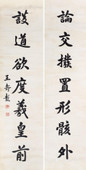 論交擺置形骸外
談道欲度羲皇前
王壽彭